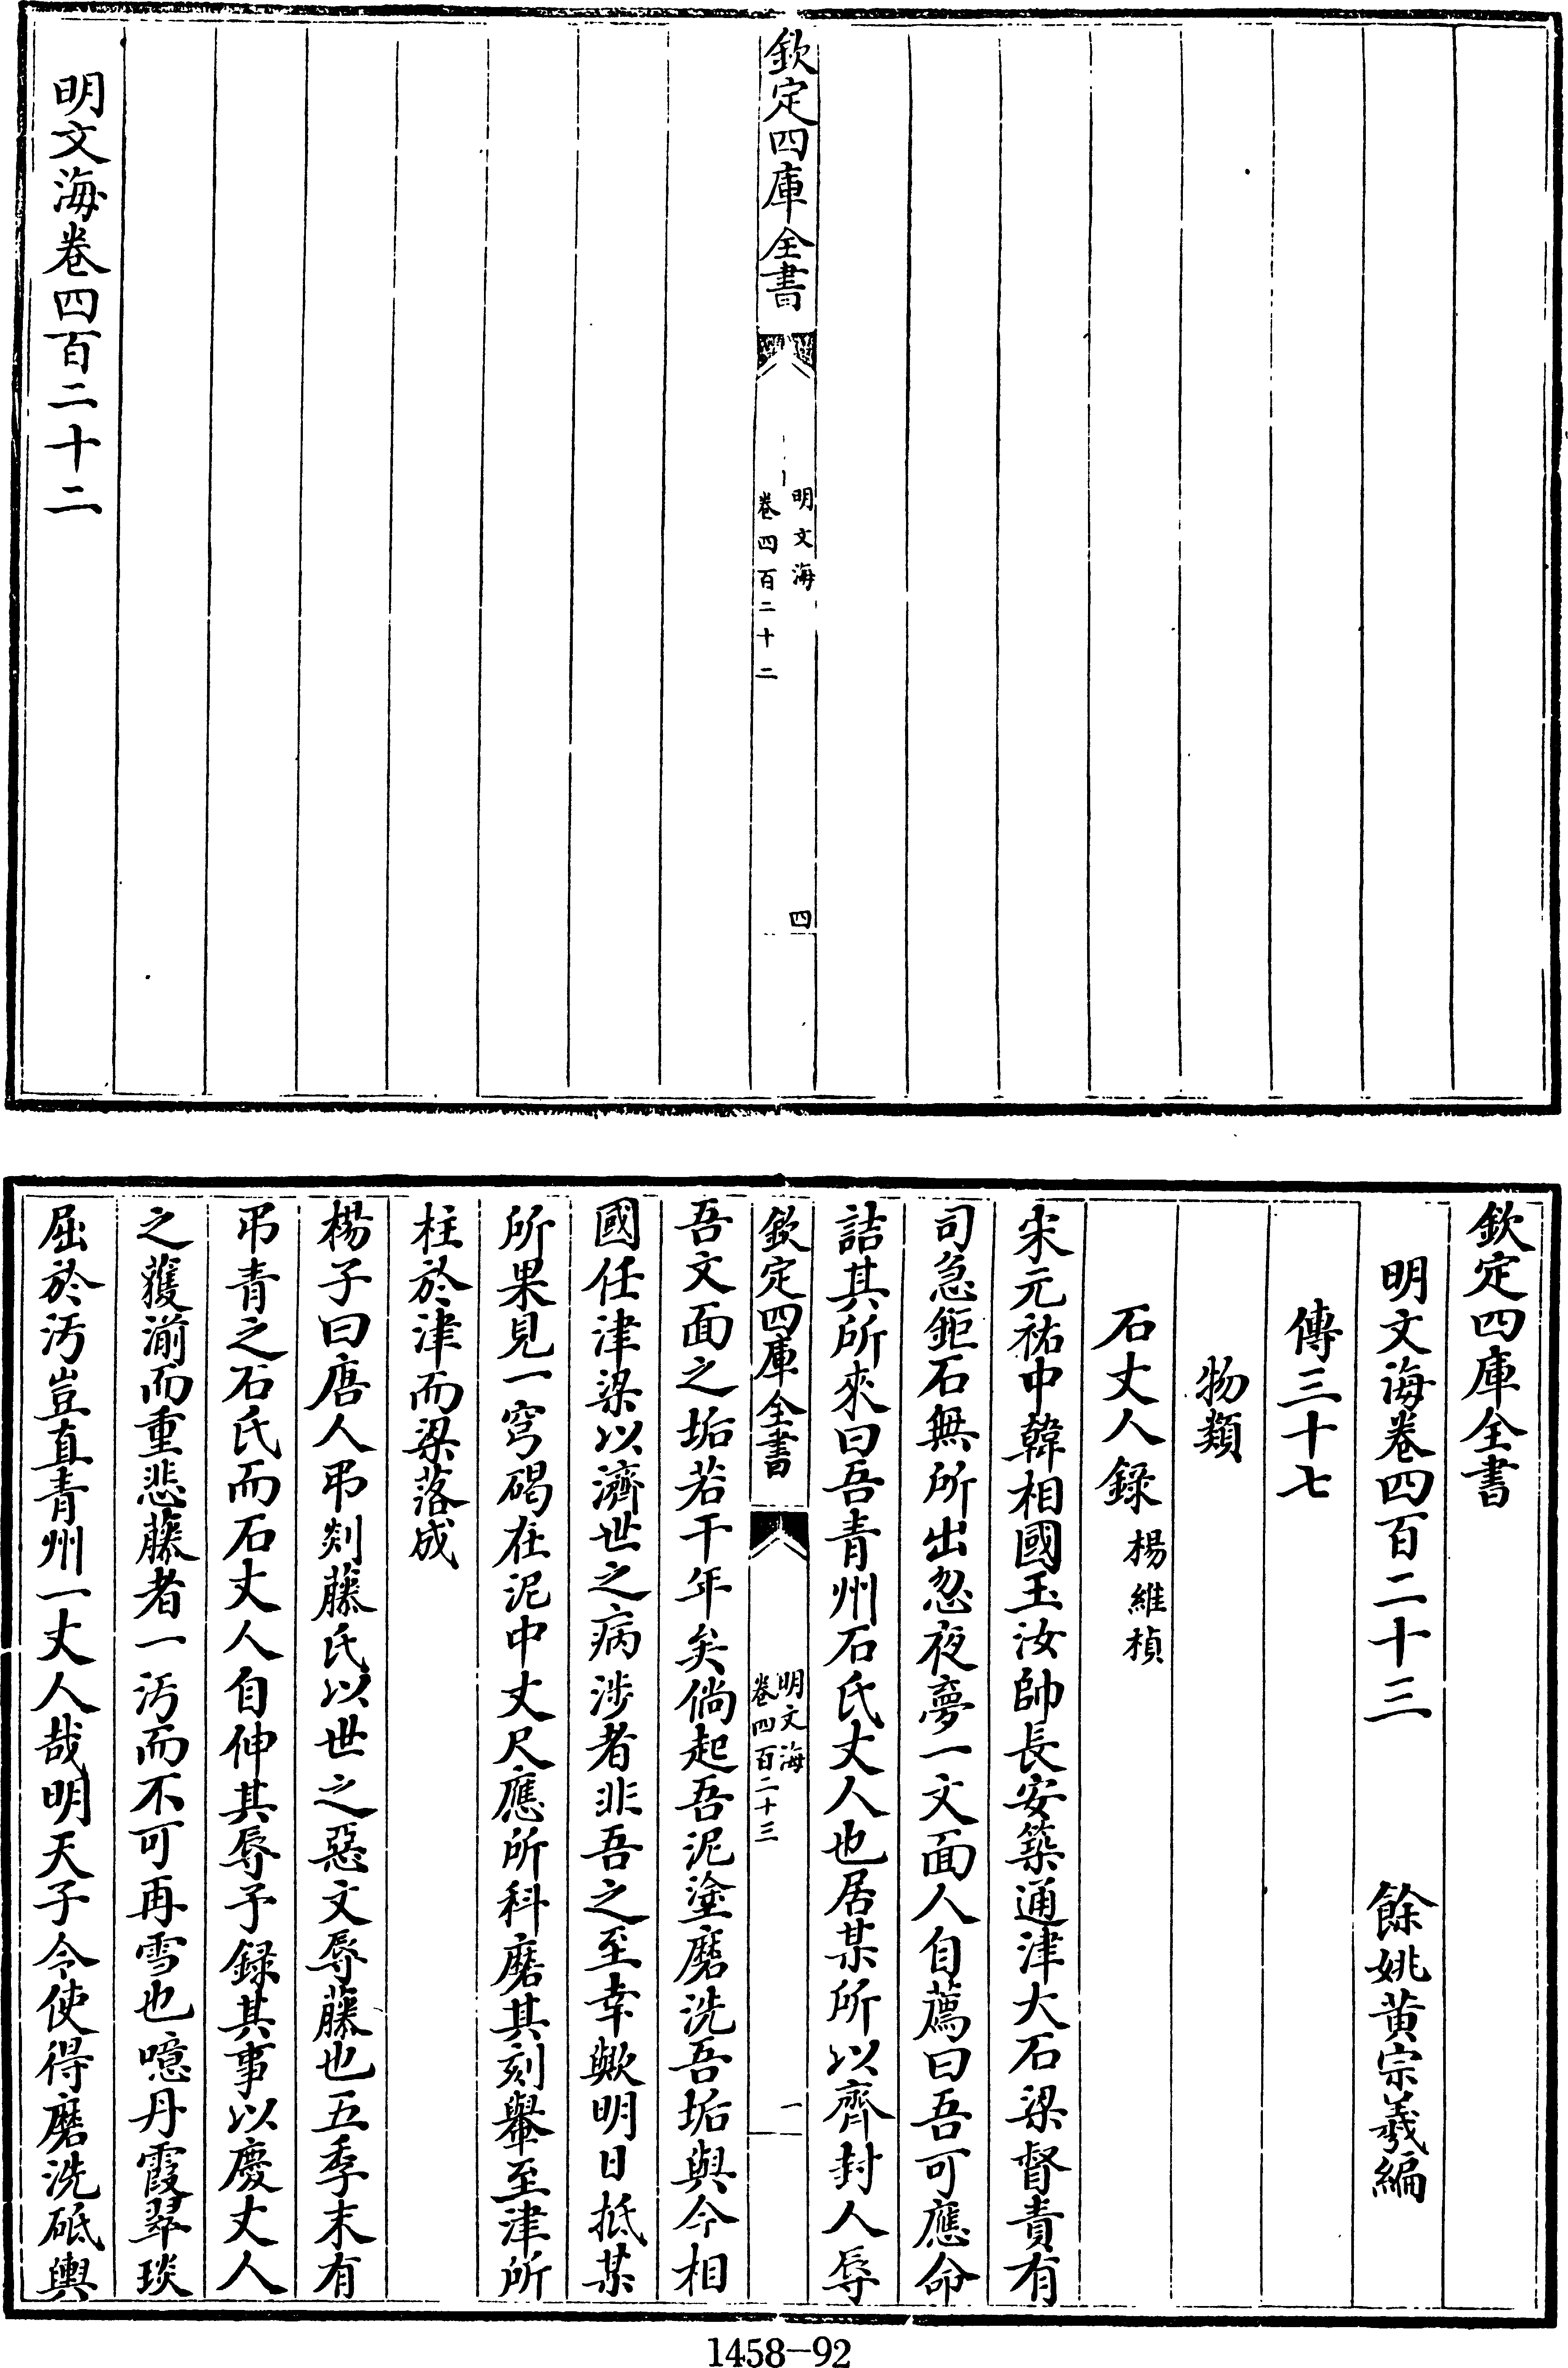 欽定四庫全書
明文海
卷四百二十二
四
明文海卷四百二十二
欽定四庫全書
明文海卷四百二十三
餘姚黄宗羲編
傳三十七
物類
石丈人錄
楊維楨
宋元祐中韓相國玉汝帥長安築通津大石梁督責有
司急鉅石無所出忽夜夢一文面人自薦曰吾可應命
詰其所來曰吾青州石氏丈人也居某所以齊封人辱
欽定四庫全書
明文海
卷四百二十三
一
吾文面之垢若干年矣倘起吾泥塗磨洗吾垢與今相
國任津梁以濟世之病涉者非吾之至幸歟明日抵某
所果見一穹碣在泥中丈尺應所科磨其刻轝至津所
柱於津而梁落成
楊子曰唐人弔剡藤氏以世之惡文辱藤也五季末有
弔青之石氏而石丈人自伸其辱予錄其事以慶丈人
之獲湔而重悲藤者一汚而不可再雪也噫丹霞翠琰
屈於汚豈直青州一丈人哉明天子令使得磨洗砥輿
1458-92